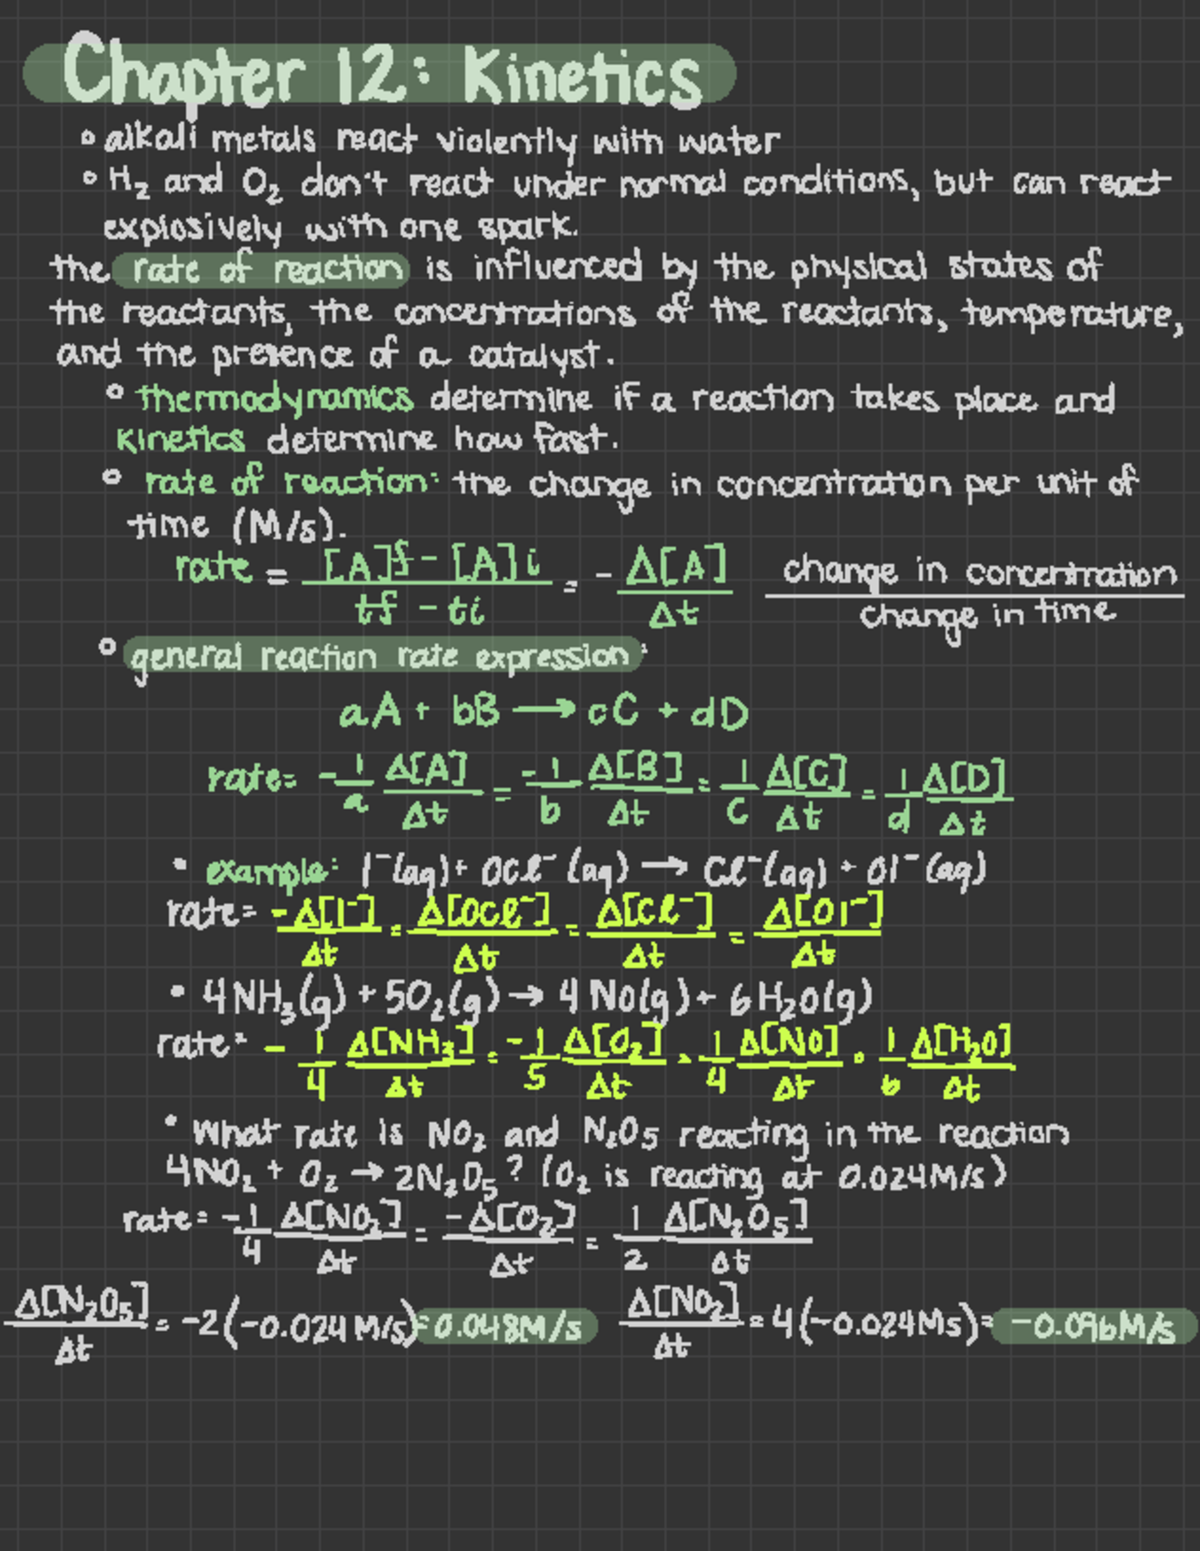 Chapter 12: Kinetics
° alkali metals react violently with water
° H₂ and O₂ don't react under normal conditions, but can react
explosively with one spark.
the rate of reaction is influenced by the physical states of
the reactants, the concentrations of the reactants, temperature,
and the presence of a catalyst.
° thermodynamics determine if a reaction takes place and
kinetics determine how fast.
° rate of reaction: the change in concentration per unit of
time (M/s).
rate = [A]f - [A]i / tf - ti = - Δ[A] / Δt   change in concentration / change in time
° general reaction rate expression:
aA + bB → cC + dD
rate = - 1/a Δ[A]/Δt = - 1/b Δ[B]/Δt = 1/c Δ[C]/Δt = 1/d Δ[D]/Δt
• example: I⁻(aq) + OCl⁻(aq) → Cl⁻(aq) + OI⁻(aq)
rate = -Δ[I⁻]/Δt = Δ[OCl⁻]/Δt = Δ[Cl⁻]/Δt = Δ[OI⁻]/Δt
• 4NH₃(g) + 5O₂(g) → 4NO(g) + 6H₂O(g)
rate = - 1/4 Δ[NH₃]/Δt = - 1/5 Δ[O₂]/Δt = 1/4 Δ[NO]/Δt = 1/6 Δ[H₂O]/Δt
• What rate is NO₂ and N₂O₅ reacting in the reaction
4NO₂ + O₂ → 2N₂O₅? (O₂ is reacting at 0.024M/s)
rate = - 1/4 Δ[NO₂]/Δt = -Δ[O₂]/Δt = 1/2 Δ[N₂O₅]/Δt
Δ[N₂O₅]/Δt = -2(-0.024 M/s) = 0.048M/s   Δ[NO₂]/Δt = 4(-0.024Ms) = -0.096M/s